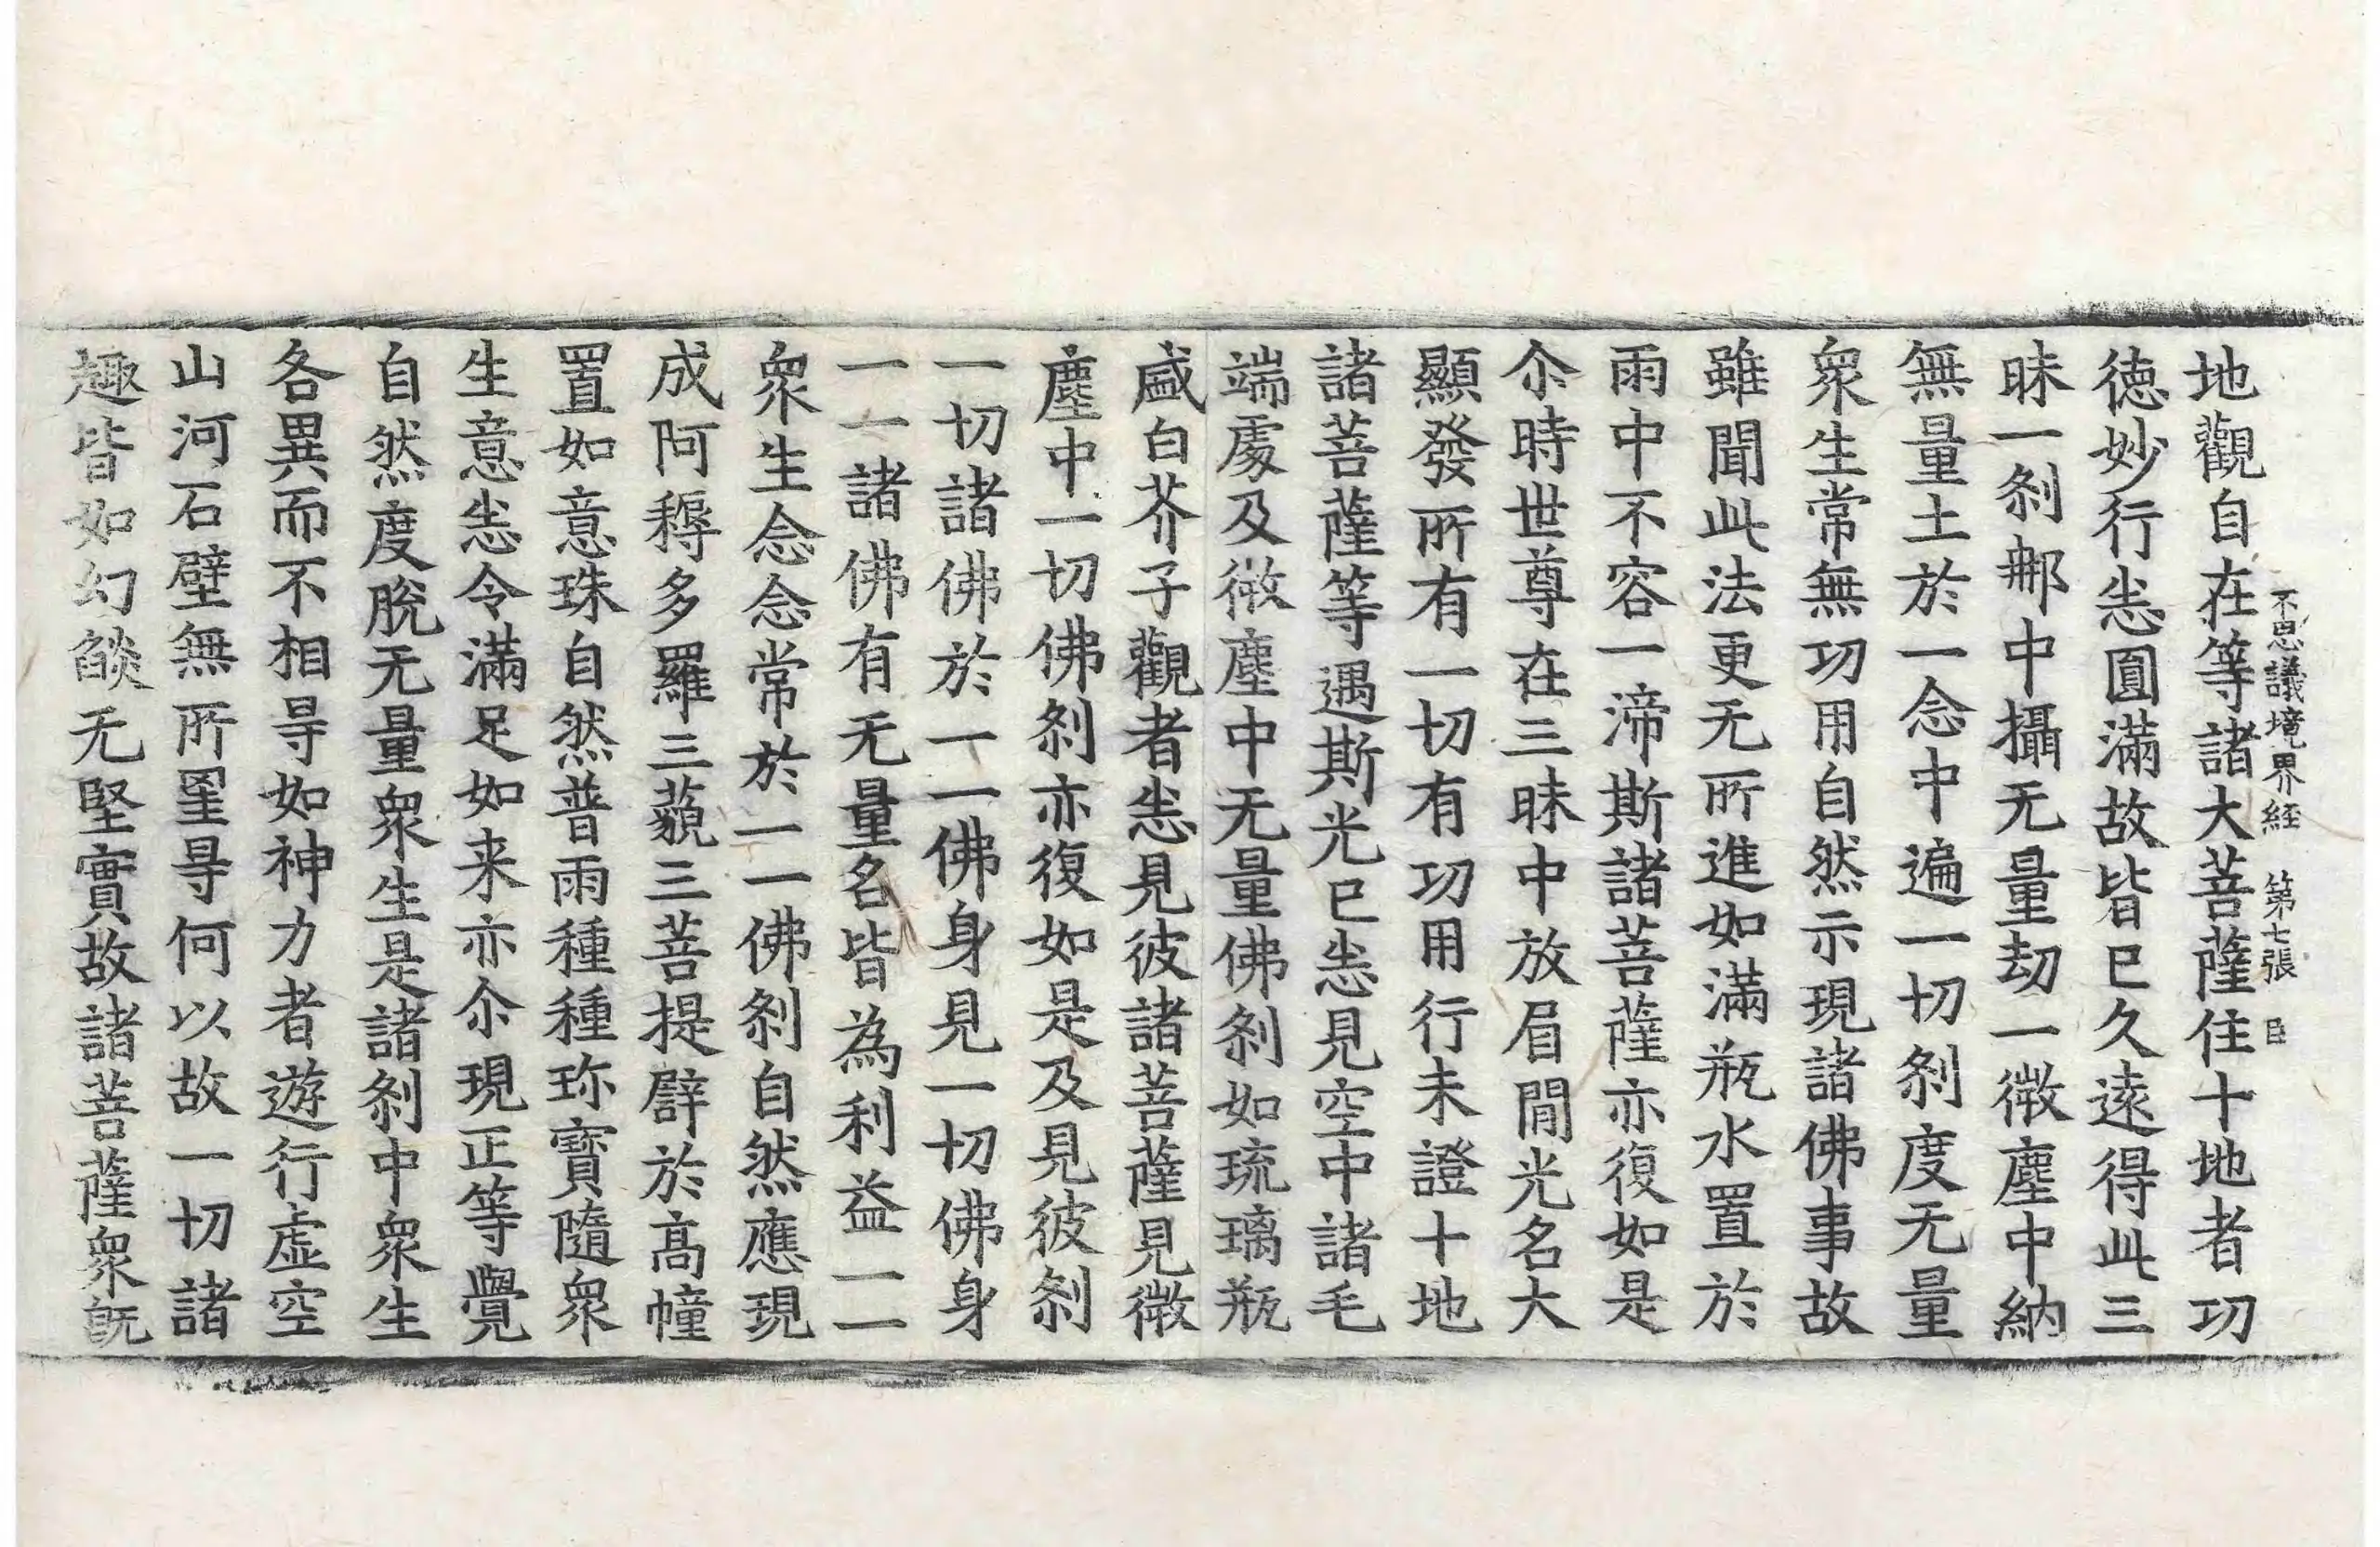 不思議境界経 第七張 臣
地觀自在等諸大菩薩住十地者功
徳妙行悉圓滿故皆已久遠得此三
昧一刹那中攝无量劫一微塵中納
無量土於一念中遍一切刹度无量
衆生常無功用自然示現諸佛事故
雖聞此法更无所進如滿瓶水置於
雨中不容一渧斯諸菩薩亦復如是
尒時世尊在三昧中放眉間光名大
顯發所有一切有功用行未證十地
諸菩薩等遇斯光已悉見空中諸毛
端處及微塵中无量佛刹如琉璃瓶
盛白芥子觀者悉見彼諸菩薩見微
塵中一切佛刹亦復如是及見彼刹
一切諸佛於一一佛身見一切佛身
一一諸佛有无量名皆為利益一一
衆生念念常於一一佛刹自然應現
成阿耨多羅三藐三菩提譬於高幢
置如意珠自然普雨種種珎寶隨衆
生意悉令滿足如来亦尒現正等覺
自然度脫无量衆生是諸刹中衆生
各異而不相㝵如神力者遊行虛空
山河石壁無所罣㝵何以故一切諸
趣皆如幻燄无堅實故諸菩薩衆旣